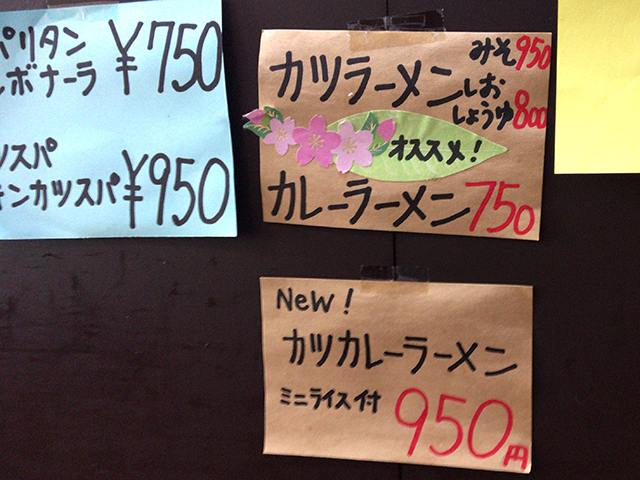 パリタン
ボナーラ ¥750
スパ
キンカツスパ ¥950
カツラーメン みそ950
しお
しょうゆ 800
オススメ!
カレーラーメン 750
New!
カツカレーラーメン
ミニライス付 950円